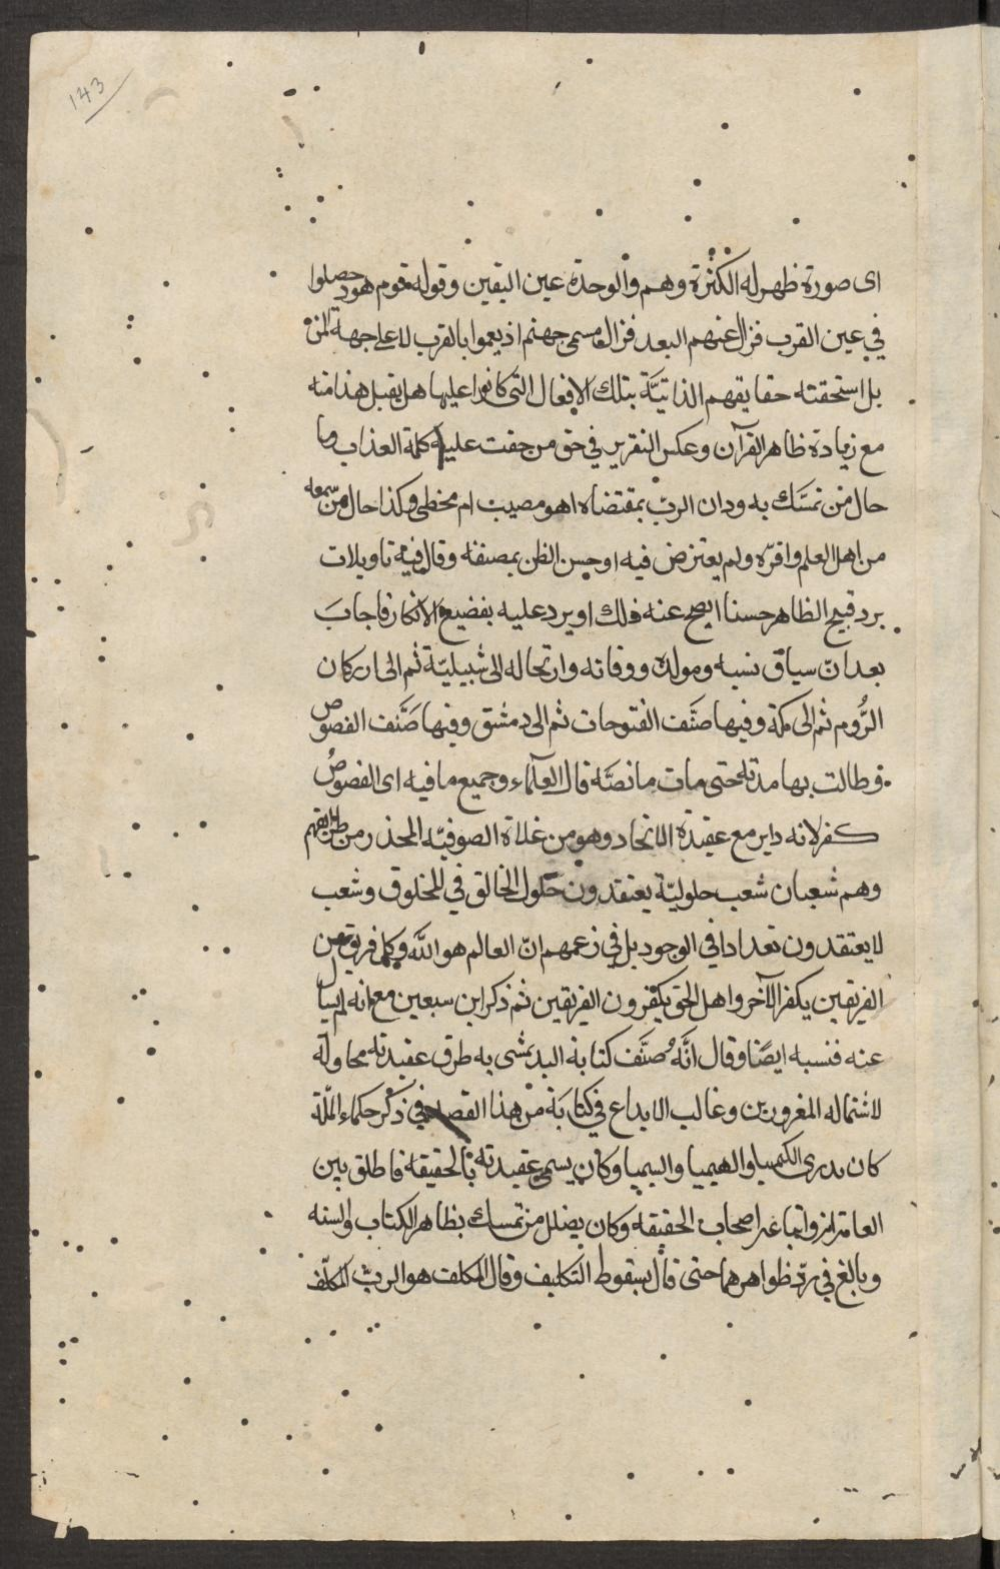 143
اى صورة ظهر له الكثرة وهم والوحدة عين اليقين وقوله قوم هود حصلوا
في عين القرب فزال عنهم البعد فزال مسمى جهنم اذ نعموا بالقرب لا على جهة المن
بل استحقته حقايقهم الذاتيّة بتلك الافعال التى كانوا عليها هل يقبل هذا منه
مع زيادة ظاهر القرآن وعكس التقرير في حق من حقت عليه كلمة العذاب وما
حال من تمسّك به ودان الربّ بمقتضاه اهو مصيب ام مخطى وكذا حال من سمعه
من اهل العلم واقرّه ولم يعترض فيه او حسن الظن بمصنفه وقال فيه تاويلات
برد قبيح الظاهر حسنا ايصح عنه ذلك او يرد عليه بفضيع الانكار فاجابَ
بعد انّ سياق نسبه ومولده ووفاته وارتحاله الى شبيليّة ثم الى اركان
الرُّوم ثم الى مكة وفيها صنّف الفتوحات ثم الى دمشق وفيها صَنَّف الفصوص
وطالت بها مدته حتى مات ما نصّه قال العلماء وجميع ما فيه اى الفصوصُ
كفر لانه داير مع عقيدة الاتحاد وهو من غلاة الصوفيّة المحذر من طرايقهم
وهم شعبان شعب حلوليّة يعتقدون حلول الخالق في المخلوق وشعب
لا يعتقدون تعدادا في الوجود بل في زعمهم انّ العالم هو اللّه وكل فريق من
الفريقين يكفر الآخر واهل الحق يكفّرون الفريقين ثم ذكر ابن سبعين مع انه لم يسأل
عنه فنسبه ايضًا وقال انَّهُ صنّف كتابه البد مشى به طرق عقيدته محاولة
لاشتماله المغرورين وغالب الابداع في كتابه من هذا القصد في ذكر حكماء الملّة
كان يدرى الكيميا والهيميا والسيميا وكان يسمى عقيدته بالحقيقة فاطلق بين
العامة انه واتباعه اصحاب الحقيقه وكان يضلل من تمسك بظاهر الكتاب والسنه
وبالغ في ردّ ظواهرهما حتى قال بسقوط التكليف وقال المكلف هو الربّ المكلّف